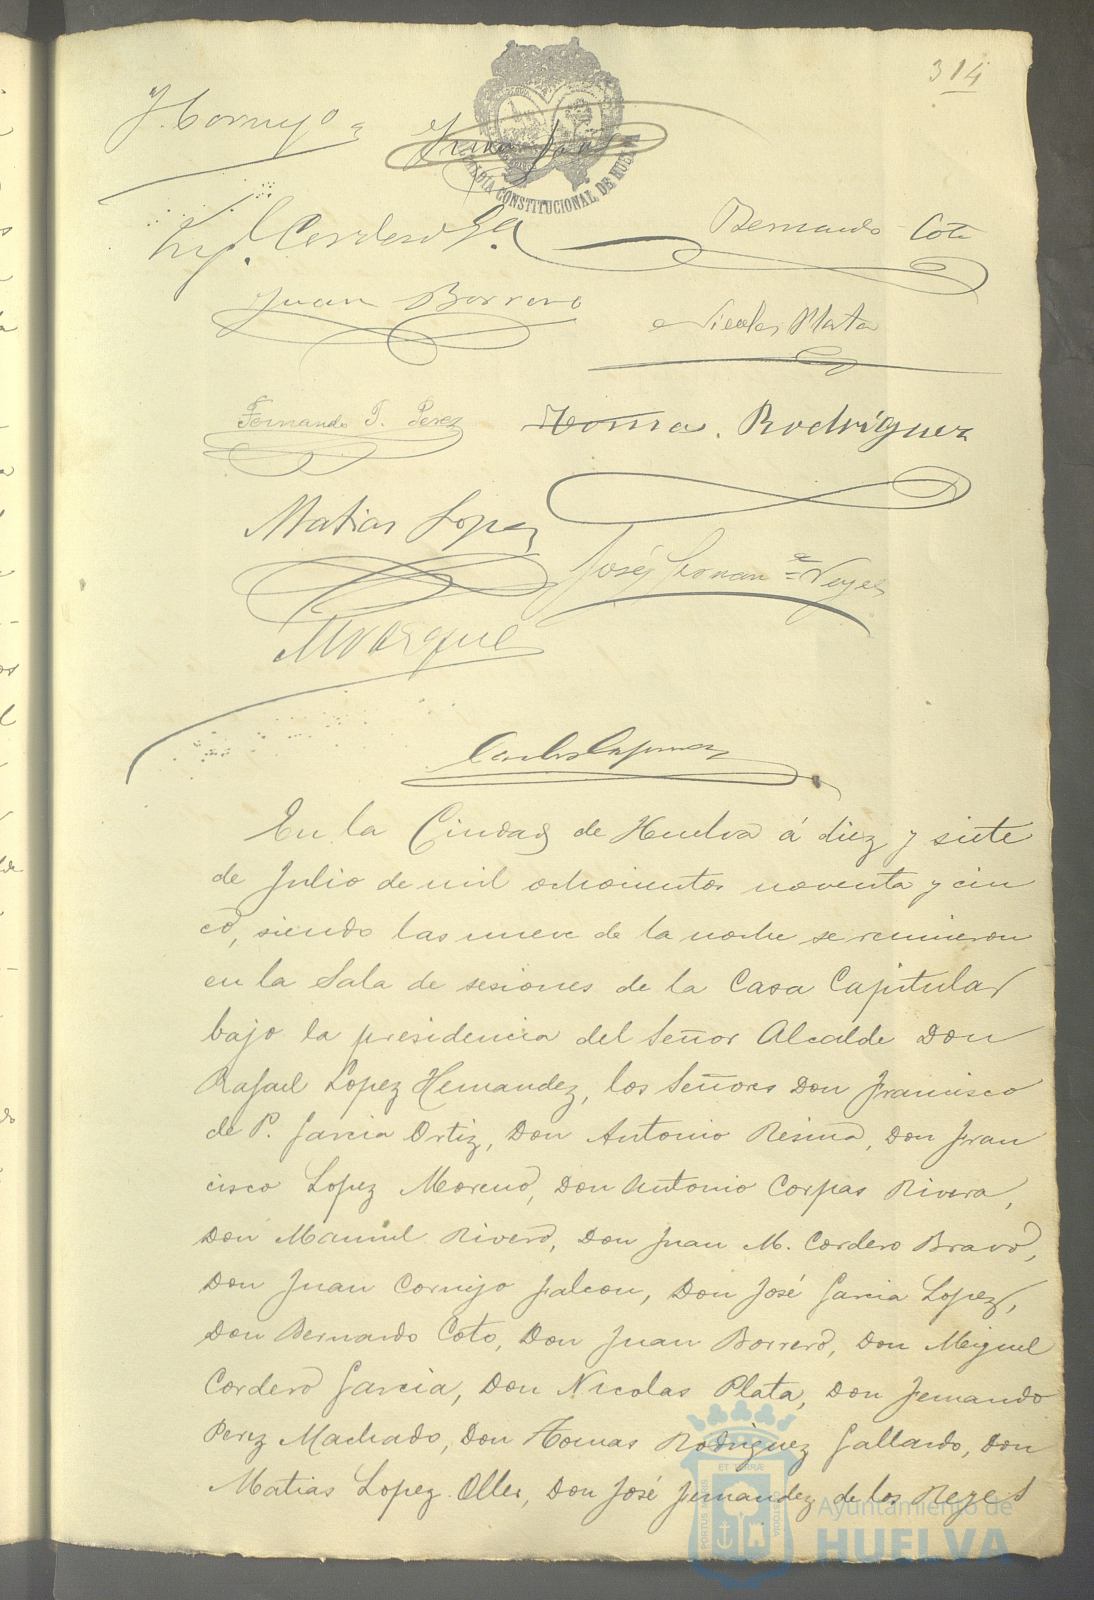 314
J. Cornejo
ALCALDIA CONSTITUCIONAL DE HUELVA
Mig.l Cordero Ga
Bernardo Coto
Juan Borrero
Nicolas Plata
Fernando T. Perez
Tomas Rodriguez
Matias Lopez
José Fernan.z Reyes
M Vazquez
En la Ciudad de Huelva á diez y siete
de Julio de mil ochocientos noventa y cin
co, siendo las nueve de la noche se reunieron
en la Sala de sesiones de la Casa Capitular
bajo la presidencia del Señor Alcalde Don
Rafael Lopez Hernandez, los Señores Don Francisco
de P. Garcia Ortiz, Don Antonio Resina, Don Fran
cisco Lopez Moreno, Don Antonio Corpas Rivera,
Don Manuel Rivero, Don Juan M. Cordero Bravo,
Don Juan Cornejo Falcon, Don José Garcia Lopez,
Don Bernardo Coto, Don Juan Borrero, Don Miguel
Cordero Garcia, Don Nicolas Plata, Don Fernando
Perez Machado, Don Tomas Rodriguez Gallardo, Don
Matias Lopez Oller, Don José Fernandez de los Reyes
PORTUS MARIS ET TERRÆ CUSTODIA
Ayuntamiento de
HUELVA